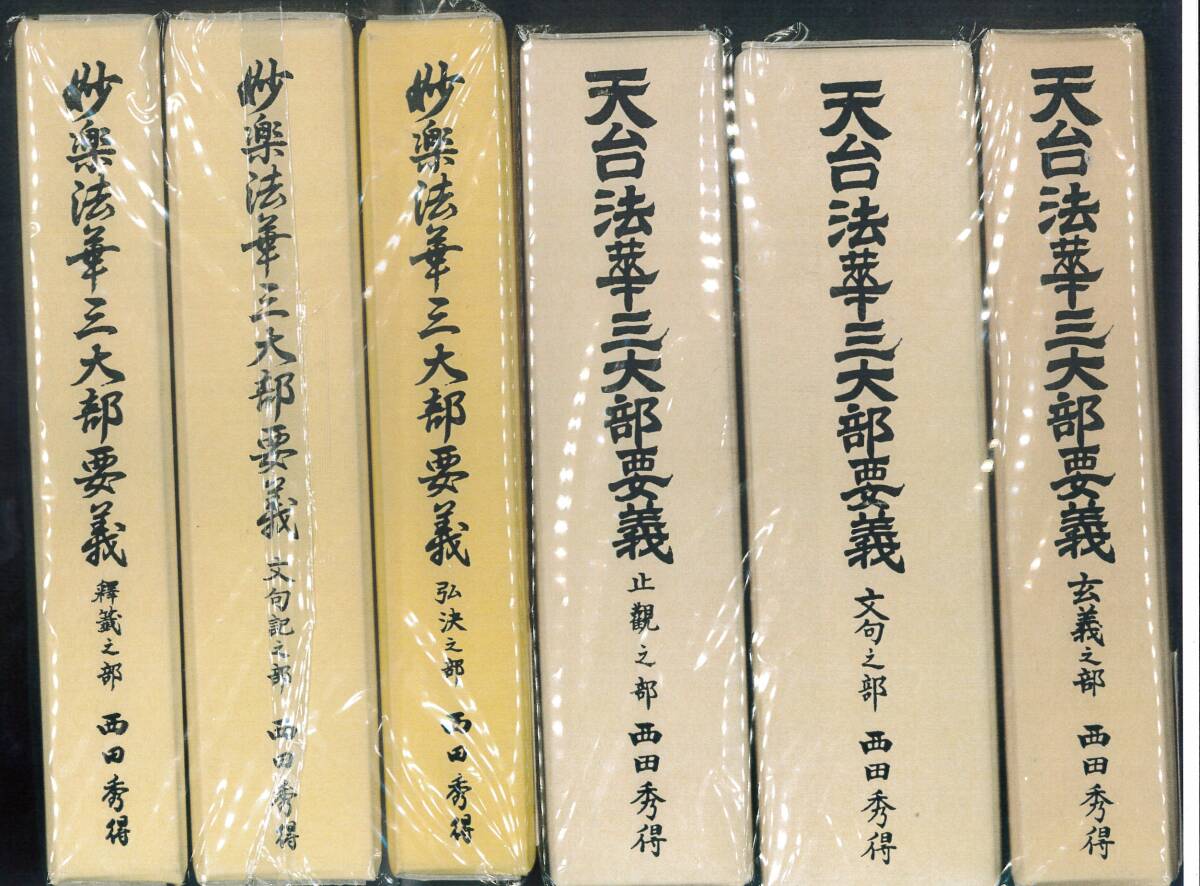 天台法華三大部要義 玄義之部 西田秀得
天台法華三大部要義 文句之部 西田秀得
天台法華三大部要義 止觀之部 西田秀得
妙楽法華三大部要義 弘決之部 西田秀得
妙楽法華三大部要義 文句記之部 西田秀得
妙楽法華三大部要義 釋籤之部 西田秀得